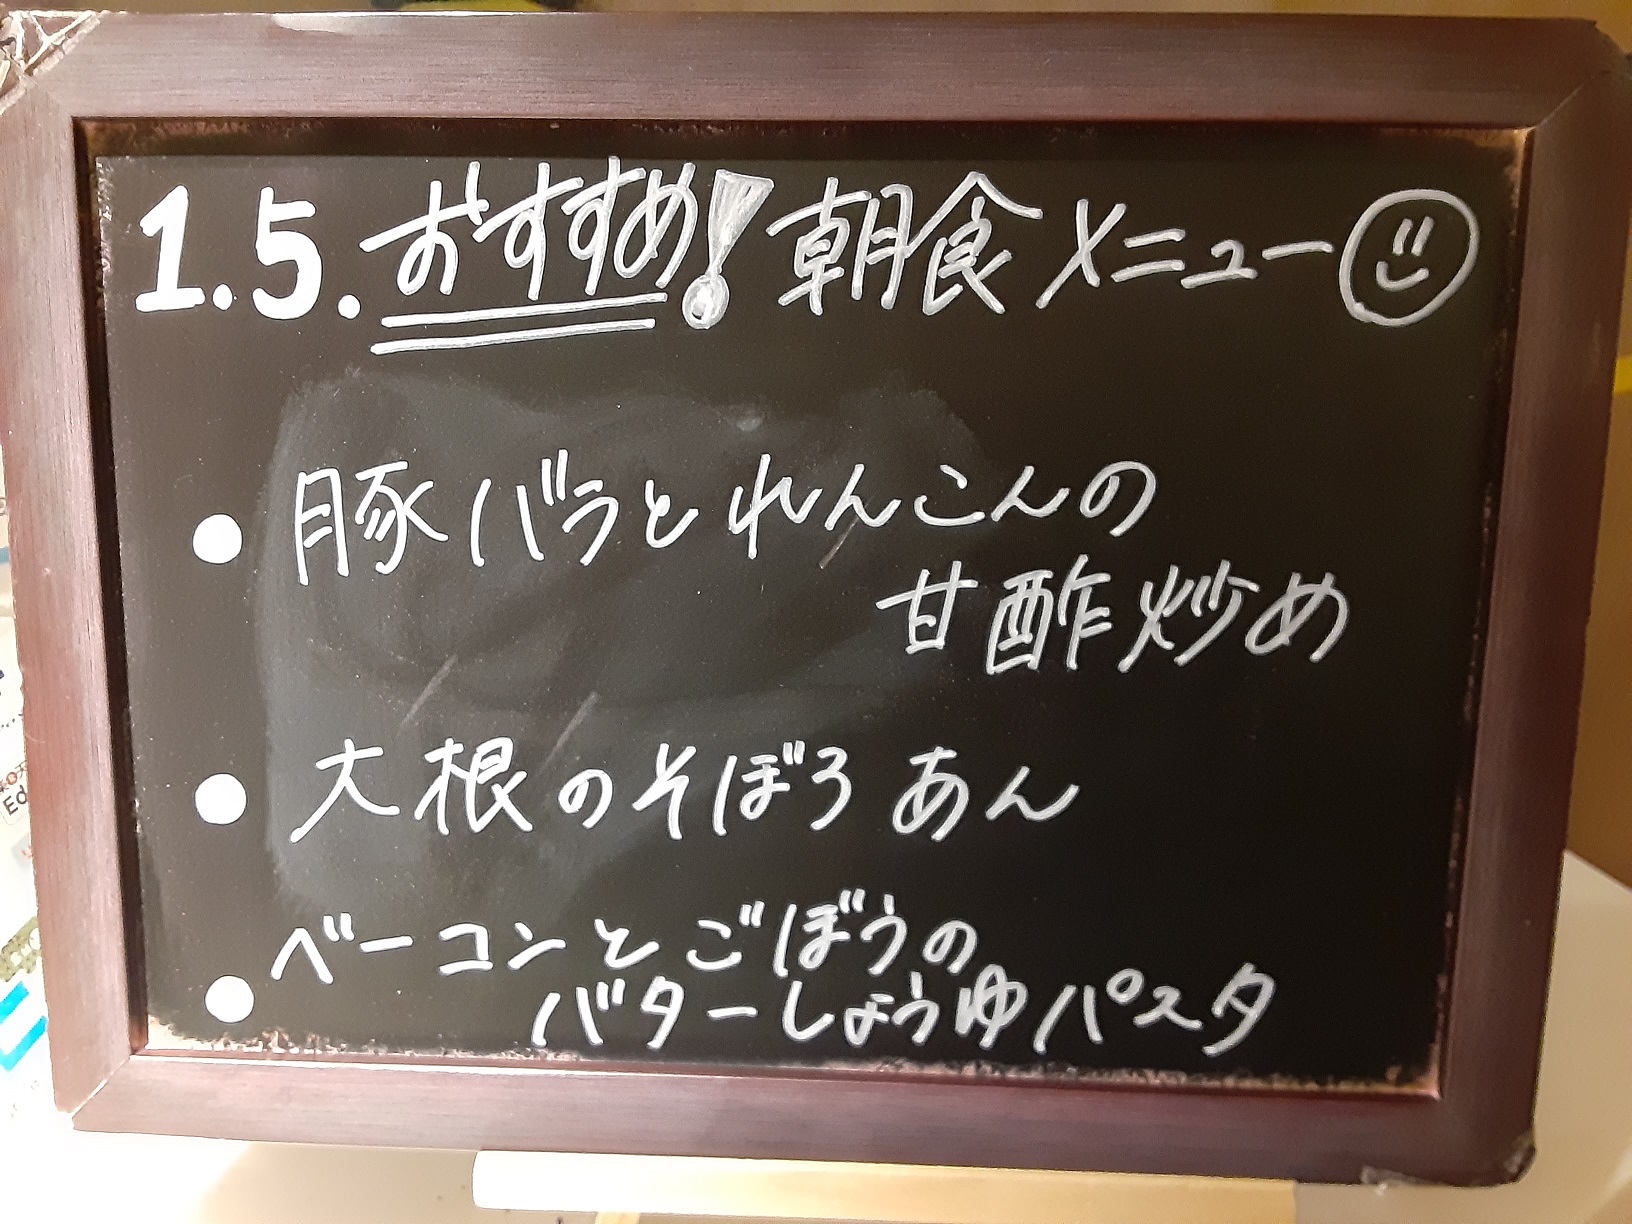 1.5. おすすめ! 朝食メニュー
● 豚バラとれんこんの
甘酢炒め
● 大根のそぼろあん
● ベーコンとごぼうの
バターしょうゆパスタ
Ed